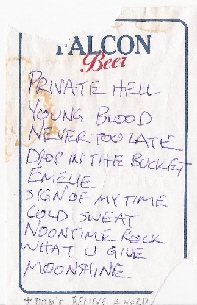 FALCON
Beer
PRIVATE HELL
YOUNG BLOOD
NEVER TOO LATE
DROP IN THE BUCKET
EMELIE
SIGN OF MY TIME
COLD SWEAT
NOONTIME ROCK
WHAT U GIVE
MOONSHINE
+ DON'T BELIEVE A WORD